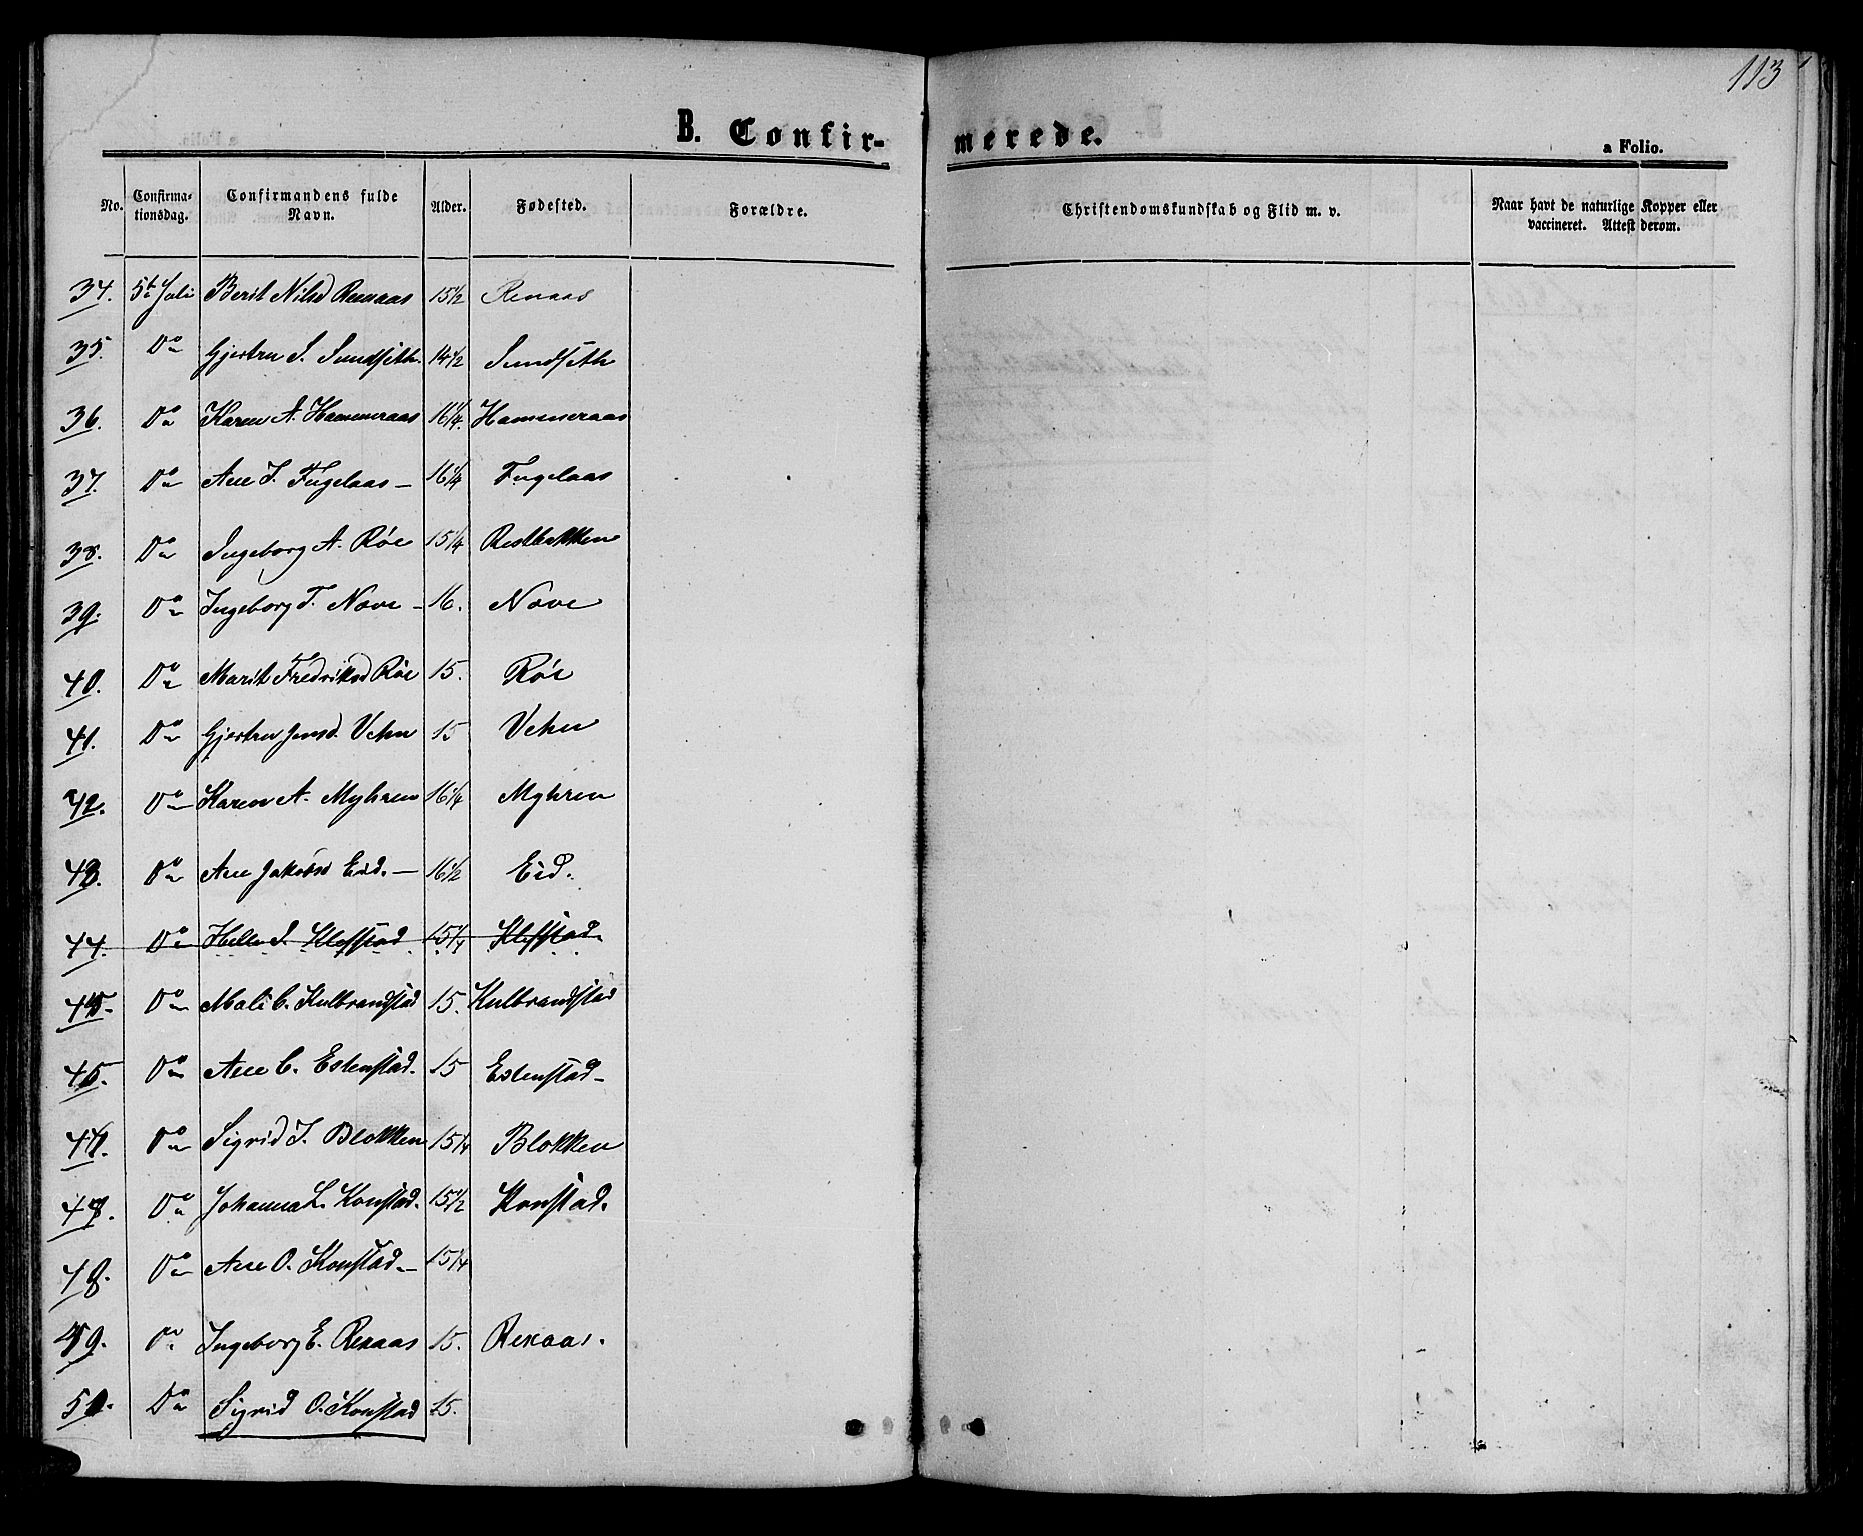 113
B. Confirmerede.
a Folio.
No. Confirmationsdag. Confirmandens fulde Navn. Alder. Fødested. Forældre. Christendomskundskab og Flid m. v. Naar havt de naturlige Kopper eller vaccineret. Attest derom.
34. 5te Juli Berit Nilsd Renaas 15 1/2 Renaas
35. Do Gjertru S. Sundseth. 14 1/2 Sundseth
36. Do Karen A. Hammeraas 16 1/4. Hammeraas
37. Do Ane J. Fuglaas — 16 1/4 Fuglaas
38. Do Ingeborg A. Røe 15 1/4
39. Do Ingeborg T. Nove — 16. Nove
40. Do Marit Fredriksd Røe 15. Røe
41. Do Gjertru Jensd. Vehn 15 Vehn
42. Do Karen A. Myhren 16 1/4 Myhren
43. Do Ane Jakobsd Eid. — 16 1/2 Eid.
44. Do S. Klefstad 15 1/4 Klefstad.
45. Do Mali C. Kulbrandstad 15. Kulbrandstad
45. Do Ane C. Estenstad. 15 Estenstad —
47. Do Sigrid J. Blokken 15 1/4 Blokken
47. Do Johanna L. Konstad. 15 1/2 Konstad.
48. Do Ane O. Konstad. — 15 1/4
49. Do Ingeborg E. Renaas 15. Renaas.
50. Do Sigrid O. Konstad 15.